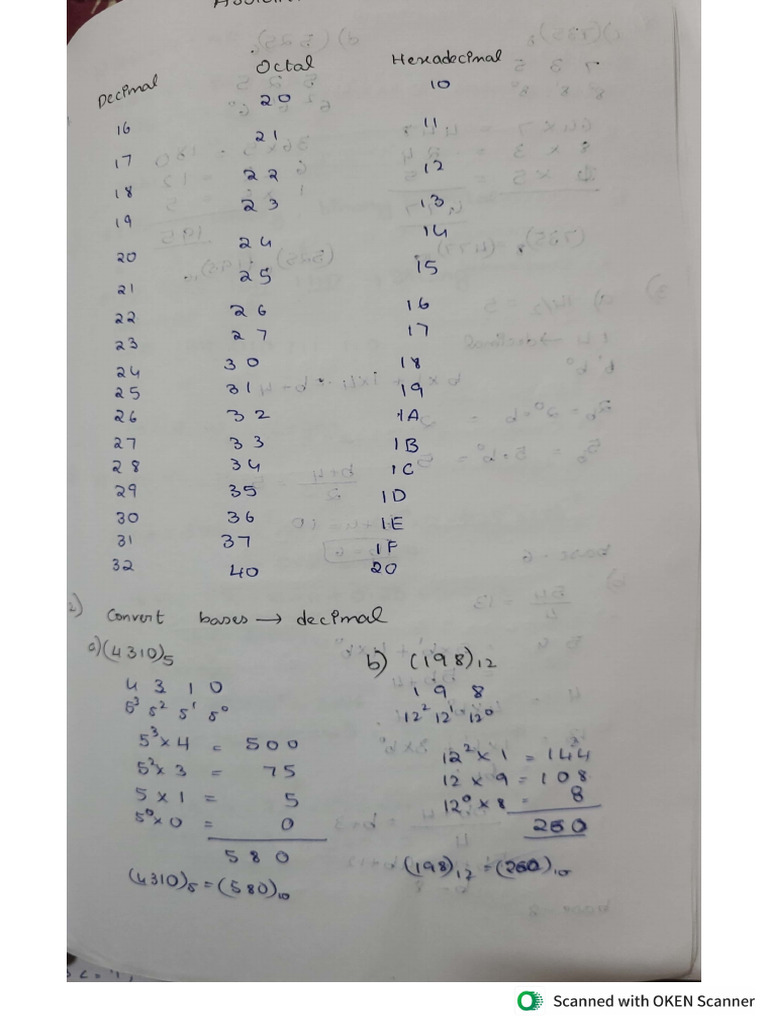 Decimal Octal Hexadecimal
16 20 10
17 21 11
18 22 12
19 23 13
20 24 14
21 25 15
22 26 16
23 27 17
24 30 18
25 31 19
26 32 1A
27 33 1B
28 34 1C
29 35 1D
30 36 1E
31 37 1F
32 40 20
2) Convert bases → decimal
a) (4310)₅
4 3 1 0
5³ 5² 5¹ 5⁰
5³ x 4 = 500
5² x 3 = 75
5 x 1 = 5
5⁰ x 0 = 0
580
(4310)₅ = (580)₁₀
b) (198)₁₂
1 9 8
12² 12¹ 12⁰
12² x 1 = 144
12 x 9 = 108
12⁰ x 8 = 8
260
(198)₁₂ = (260)₁₀
Scanned with OKEN Scanner